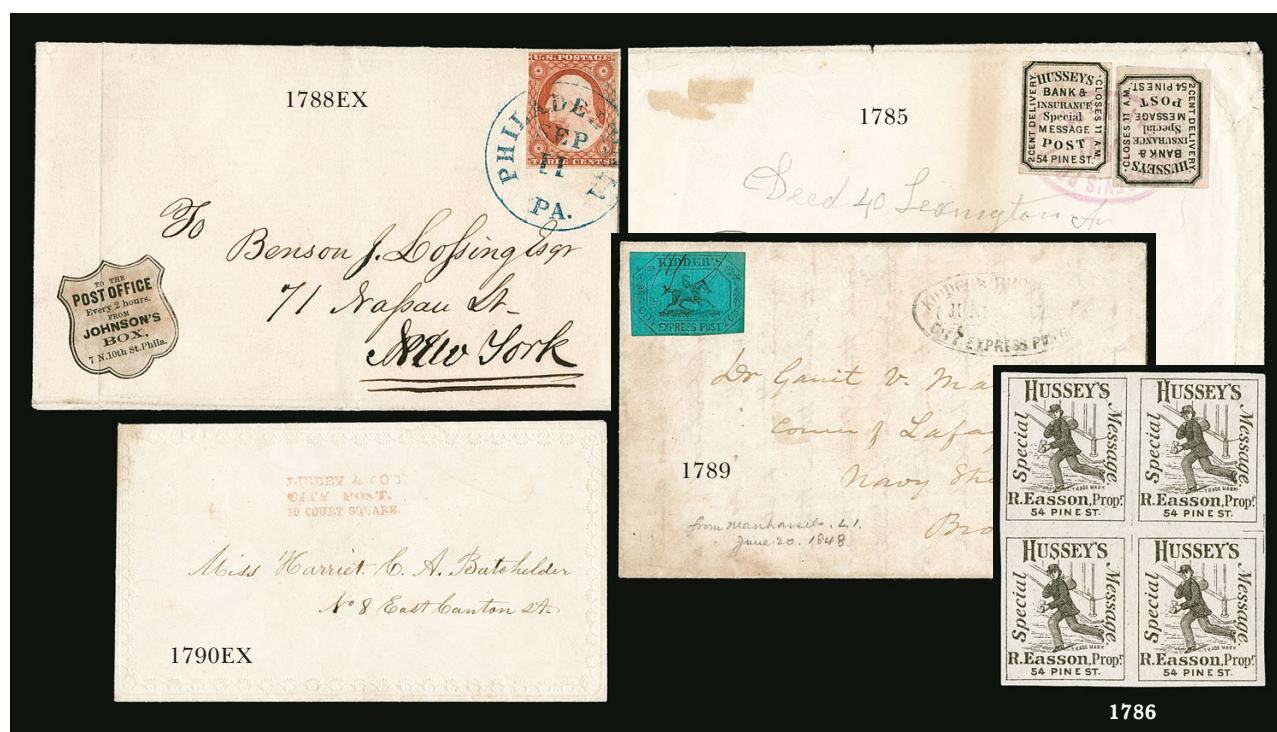 1788EX
U.S. POSTAGE
THREE CENTS
PHILADELPHIA
SEP
11
PA.
To
Benson J. Lossing Esqr
71 Nassau St.
New York
TO THE
POST OFFICE
Every 2 hours,
FROM
JOHNSON'S
BOX,
7 N.10th St. Phila.
1785
HUSSEY'S
BANK &
INSURANCE
Special
MESSAGE
POST
54 PINE ST.
2 CENT DELIVERY
CLOSES 11 A.M.
HUSSEY'S
BANK &
INSURANCE
Special
MESSAGE
POST
54 PINE ST.
2 CENT DELIVERY
CLOSES 11 A.M.
Deed 40 Lexington Av
KIDDER'S
CITY
EXPRESS POST
KIDDER'S
CITY EXPRESS POST
Dr
V. Ma
Corner of Lafay
Navy Stre
Bro
1789
from Manhasset, L.I.
June 20, 1848.
LIBBEY & CO'S
CITY POST.
10 COURT SQUARE
Miss Harriet C. A. Batchelder
No 8 East Canton St.
1790EX
HUSSEY'S
Special Message.
TRADE MARK
R. Easson, Propr.
54 PINE ST.
HUSSEY'S
Special Message.
TRADE MARK
R. Easson, Propr.
54 PINE ST.
HUSSEY'S
Special Message.
TRADE MARK
R. Easson, Propr.
54 PINE ST.
HUSSEY'S
Special Message.
TRADE MARK
R. Easson, Propr.
54 PINE ST.
1786